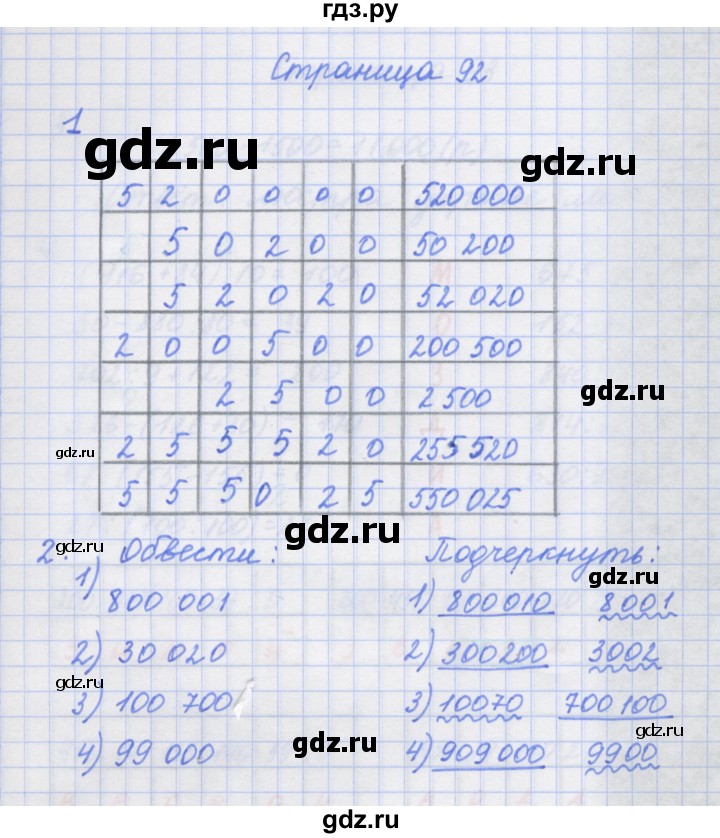 гдз.ру
Страница 92
1
gdz.ru
5 2 0 0 0 0 520 000
5 0 2 0 0 50 200
5 2 0 2 0 52 020
2 0 0 5 0 0 200 500
gdz.ru
2 5 0 0 2 500
2 5 5 5 2 0 255 520
gdz.ru
5 5 5 0 2 5 550 025
gdz.ru
2. Обвести: Подчеркнуть:
gdz.ru
1) 800 001 1) 800010 8001
2) 30 020 2) 300200 3002
gdz.ru gdz.ru
3) 100 700 3) 10070 700 100
gdz.ru gdz.ru
4) 99 000 4) 909 000 9900
gdz.ru